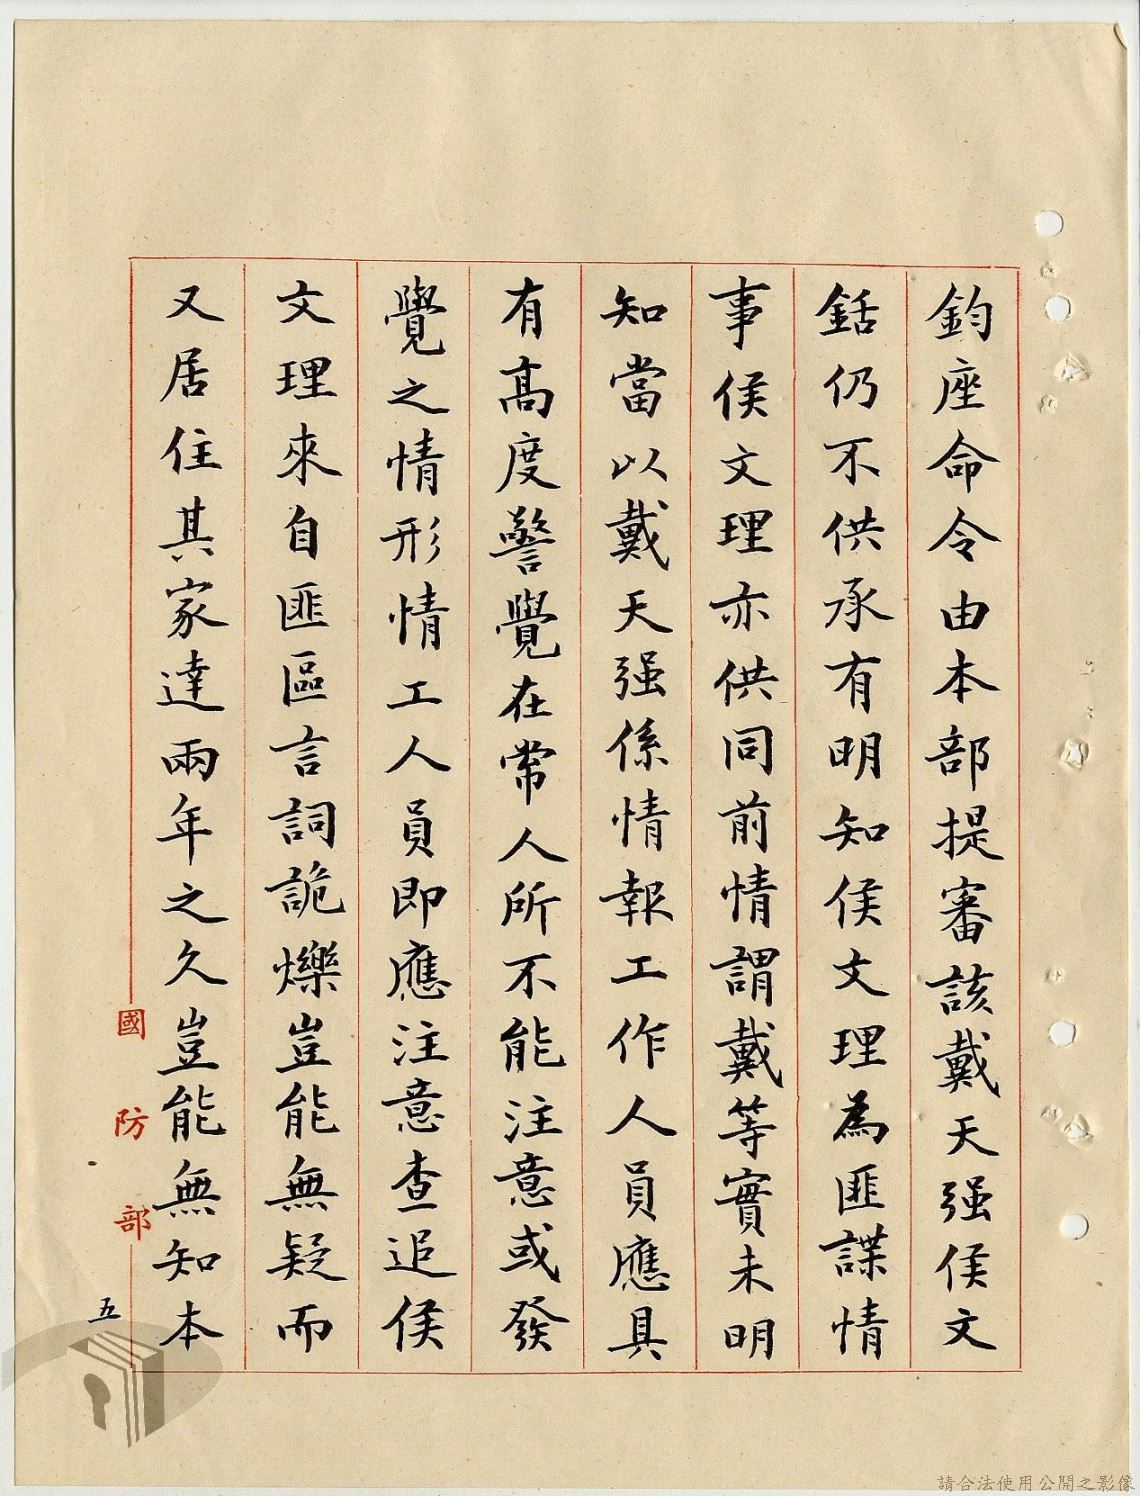 鈞座命令由本部提審該戴天强侯文
銛仍不供承有明知侯文理為匪諜情
事侯文理亦供同前情謂戴等實未明
知當以戴天强係情報工作人員應具
有高度警覺在常人所不能注意或發
覺之情形情工人員即應注意查追侯
文理來自匪區言詞詭爍豈能無疑而
又居住其家達兩年之久豈能無知本
國防部
五
請合法使用公開之影像